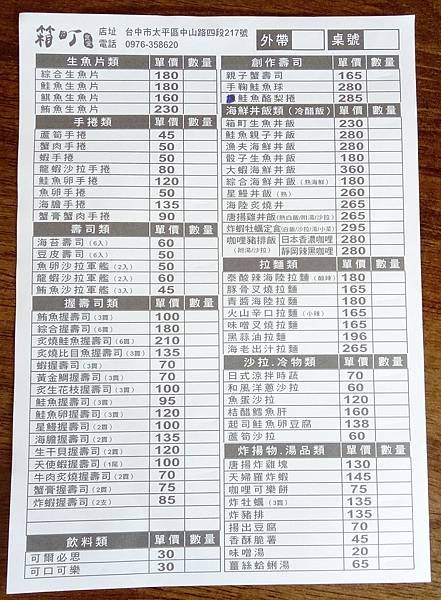 箱町
店址 台中市太平區中山路四段217號
電話 0976-358620
外帶
桌號
生魚片類 單價 數量
綜合生魚片 180
鮭魚生魚片 180
鯛魚生魚片 160
鮪魚生魚片 230
手捲類 單價 數量
蘆筍手捲 45
蟹肉手捲 50
蝦手捲 50
龍蝦沙拉手捲 80
鮭魚卵手捲 120
魚卵手捲 50
海膽手捲 135
蟹膏蟹肉手捲 90
壽司類 單價 數量
海苔壽司(6入) 60
豆皮壽司(5入) 50
魚卵沙拉軍艦(2入) 50
龍蝦沙拉軍艦(2入) 60
鮪魚沙拉軍艦(2入) 45
握壽司類 單價 數量
鮪魚握壽司(3貫) 100
綜合握壽司(6貫) 180
炙燒鮭魚握壽司(6貫) 210
炙燒比目魚握壽司(3貫) 135
蝦握壽司(3貫) 70
黃金鯛握壽司(3貫) 70
炙生花枝握壽司(3貫) 100
鮭魚握壽司(3貫) 95
鮭魚卵握壽司(2貫) 120
星鰻握壽司(2貫) 100
海膽握壽司(2貫) 135
生干貝握壽司(2貫) 120
天使蝦握壽司(1尾) 100
牛肉炙燒握壽司(2貫) 70
蟹膏握壽司(2貫) 75
炸蝦握壽司(2支) 85
飲料類 單價 數量
可爾必思 30
可口可樂 30
創作壽司 單價 數量
親子蟹壽司 165
手鞠鮭魚球 280
鮭魚酪梨捲 285
海鮮丼飯類(冷醋飯) 單價 數量
箱町生魚丼飯 230
鮭魚親子丼飯 280
漁夫海鮮丼飯 280
骰子生魚丼飯 180
大蝦海鮮丼飯 360
綜合海鮮丼飯(熱海鮮) 180
星鰻丼飯(熱) 260
海陸炙燒丼 265
唐揚雞丼飯(熱白飯/附湯/沙拉) 265
炸蝦牡蠣定食(白飯/沙拉/湯/小菜) 295
咖哩豬排飯(附湯/沙拉) 日本香濃咖哩 280
靜岡辣黑咖哩 280
拉麵類 單價 數量
泰酸辣海陸拉麵(酸辣) 180
豚骨叉燒拉麵 180
青醬海陸拉麵 180
火山辛口拉麵(小辣) 165
味噌叉燒拉麵 165
黑蒜油拉麵 196
海老出汁拉麵 265
沙拉.冷物類 單價 數量
日式涼拌時蔬 70
和風洋蔥沙拉 60
魚蛋沙拉 120
桔醋鱈魚肝 160
起司鮭魚卵豆腐 138
蘆筍沙拉 60
炸揚物.湯品類 單價 數量
唐揚炸雞塊 130
天婦羅炸蝦 145
咖哩可樂餅 75
炸牡蠣(3貫) 135
炸豬排 135
揚出豆腐 70
香酥脆薯 45
味噌湯 20
薑絲蛤蜊湯 65